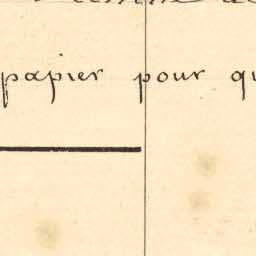 papier pour qu